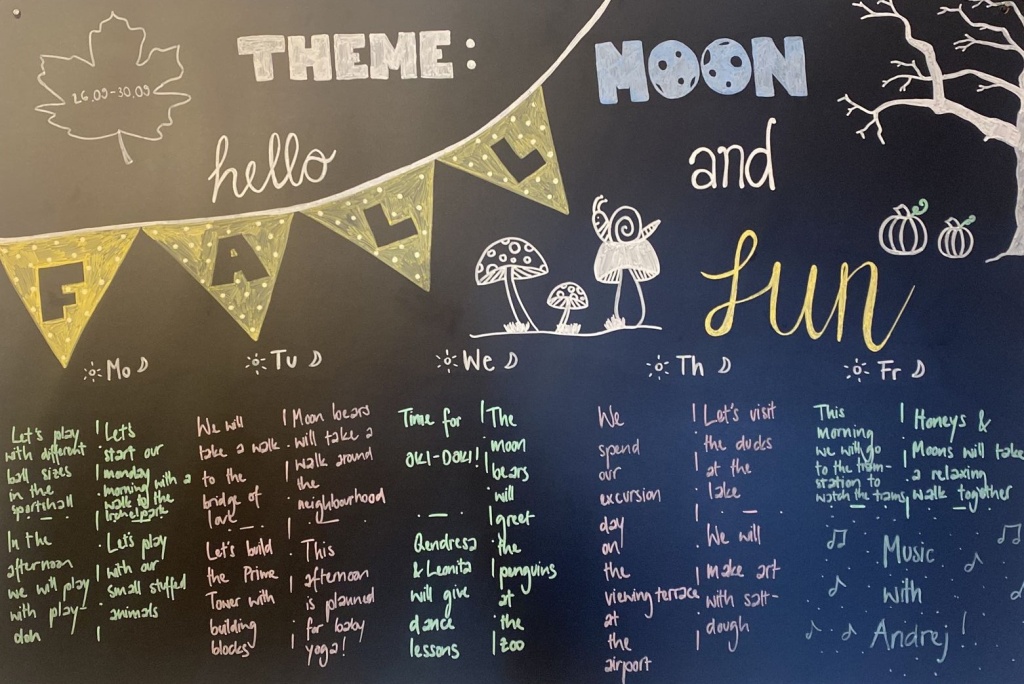 26.09-30.09
THEME: MOON
hello
and
FALL
fun
Mo
Let's play
with different
ball sizes
in the
sportshall
In the
afternoon
we will play
with play-
doh
Let's
start our
monday
morning with a
walk to the
Let's play
with our
small stuffed
animals
Tu
We will
take a walk
to the
bridge of
love
Let's build
the Prime
Tower with
building
blocks
Moon bears
will take a
walk around
the
neighbourhood
This
afternoon
is planned
for baby
yoga!
We
Time for
OKI-DOKI!
Qendresa
& Leonita
will give
dance
lessons
The
moon
bears
will
greet
the
penguins
at
the
zoo
Th
We
spend
our
excursion
day
on
the
viewing terrace
at
the
airport
Let's visit
the ducks
at the
lake
We will
make art
with salt-
dough
Fr
This
Morning
we will go
to the train-
station to
watch the trains
Honeys &
Moons will take
a relaxing
walk together
Music
with
Andrej!